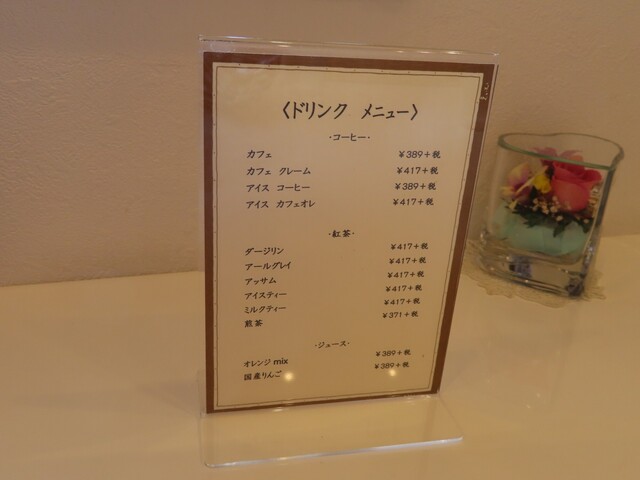 〈ドリンク メニュー〉
・コーヒー・
カフェ ¥389+税
カフェ クレーム ¥417+税
アイス コーヒー ¥389+税
アイス カフェオレ ¥417+税
・紅茶・
ダージリン ¥417+税
アールグレイ ¥417+税
アッサム ¥417+税
アイスティー ¥417+税
ミルクティー ¥417+税
煎茶 ¥371+税
・ジュース・
オレンジmix ¥389+税
国産りんご ¥389+税